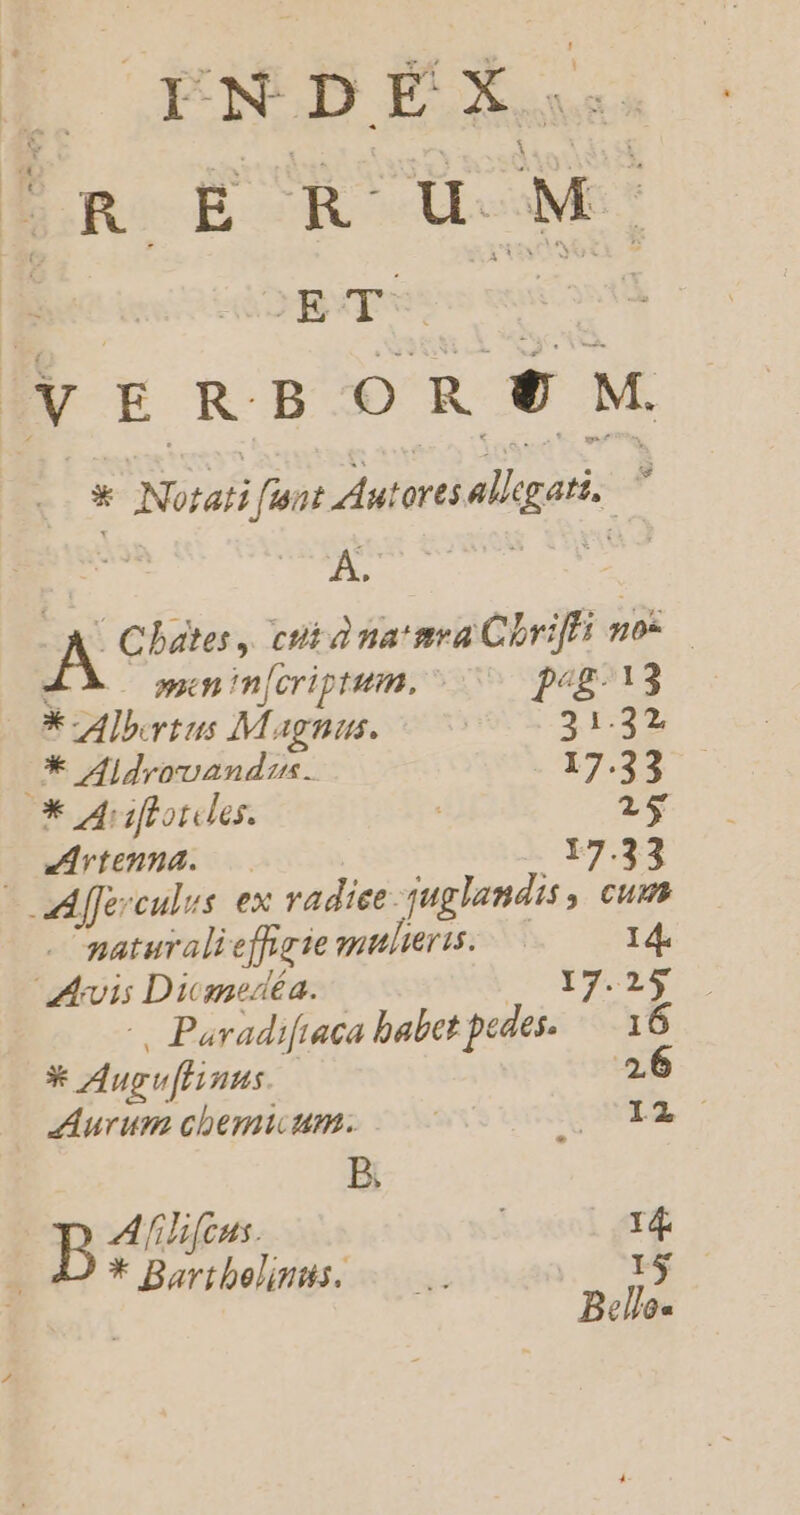 INDEX
RERUM
ET
VERBORUM.
* Notati ſunt Autores allegati.
A.
AChates, cui à natura Chriſti no-
men inſcriptum. pag. 13
* Albertus Magnus. 31.32
* Aldrovandus. 17.33
* Ariſtoteles. 25
Artenna. 17.33
Aſſerculus ex radice juglandis, cum
naturali effigie mulieris. 14
Avis Diomedéa. 17.25
, Paradiſiaca habet pedes. 16
* Auguſtinus. 26
Aurum chemicum. 12
B.
BAſiliſcus. 14
* Bartholinus. 15
Bello-